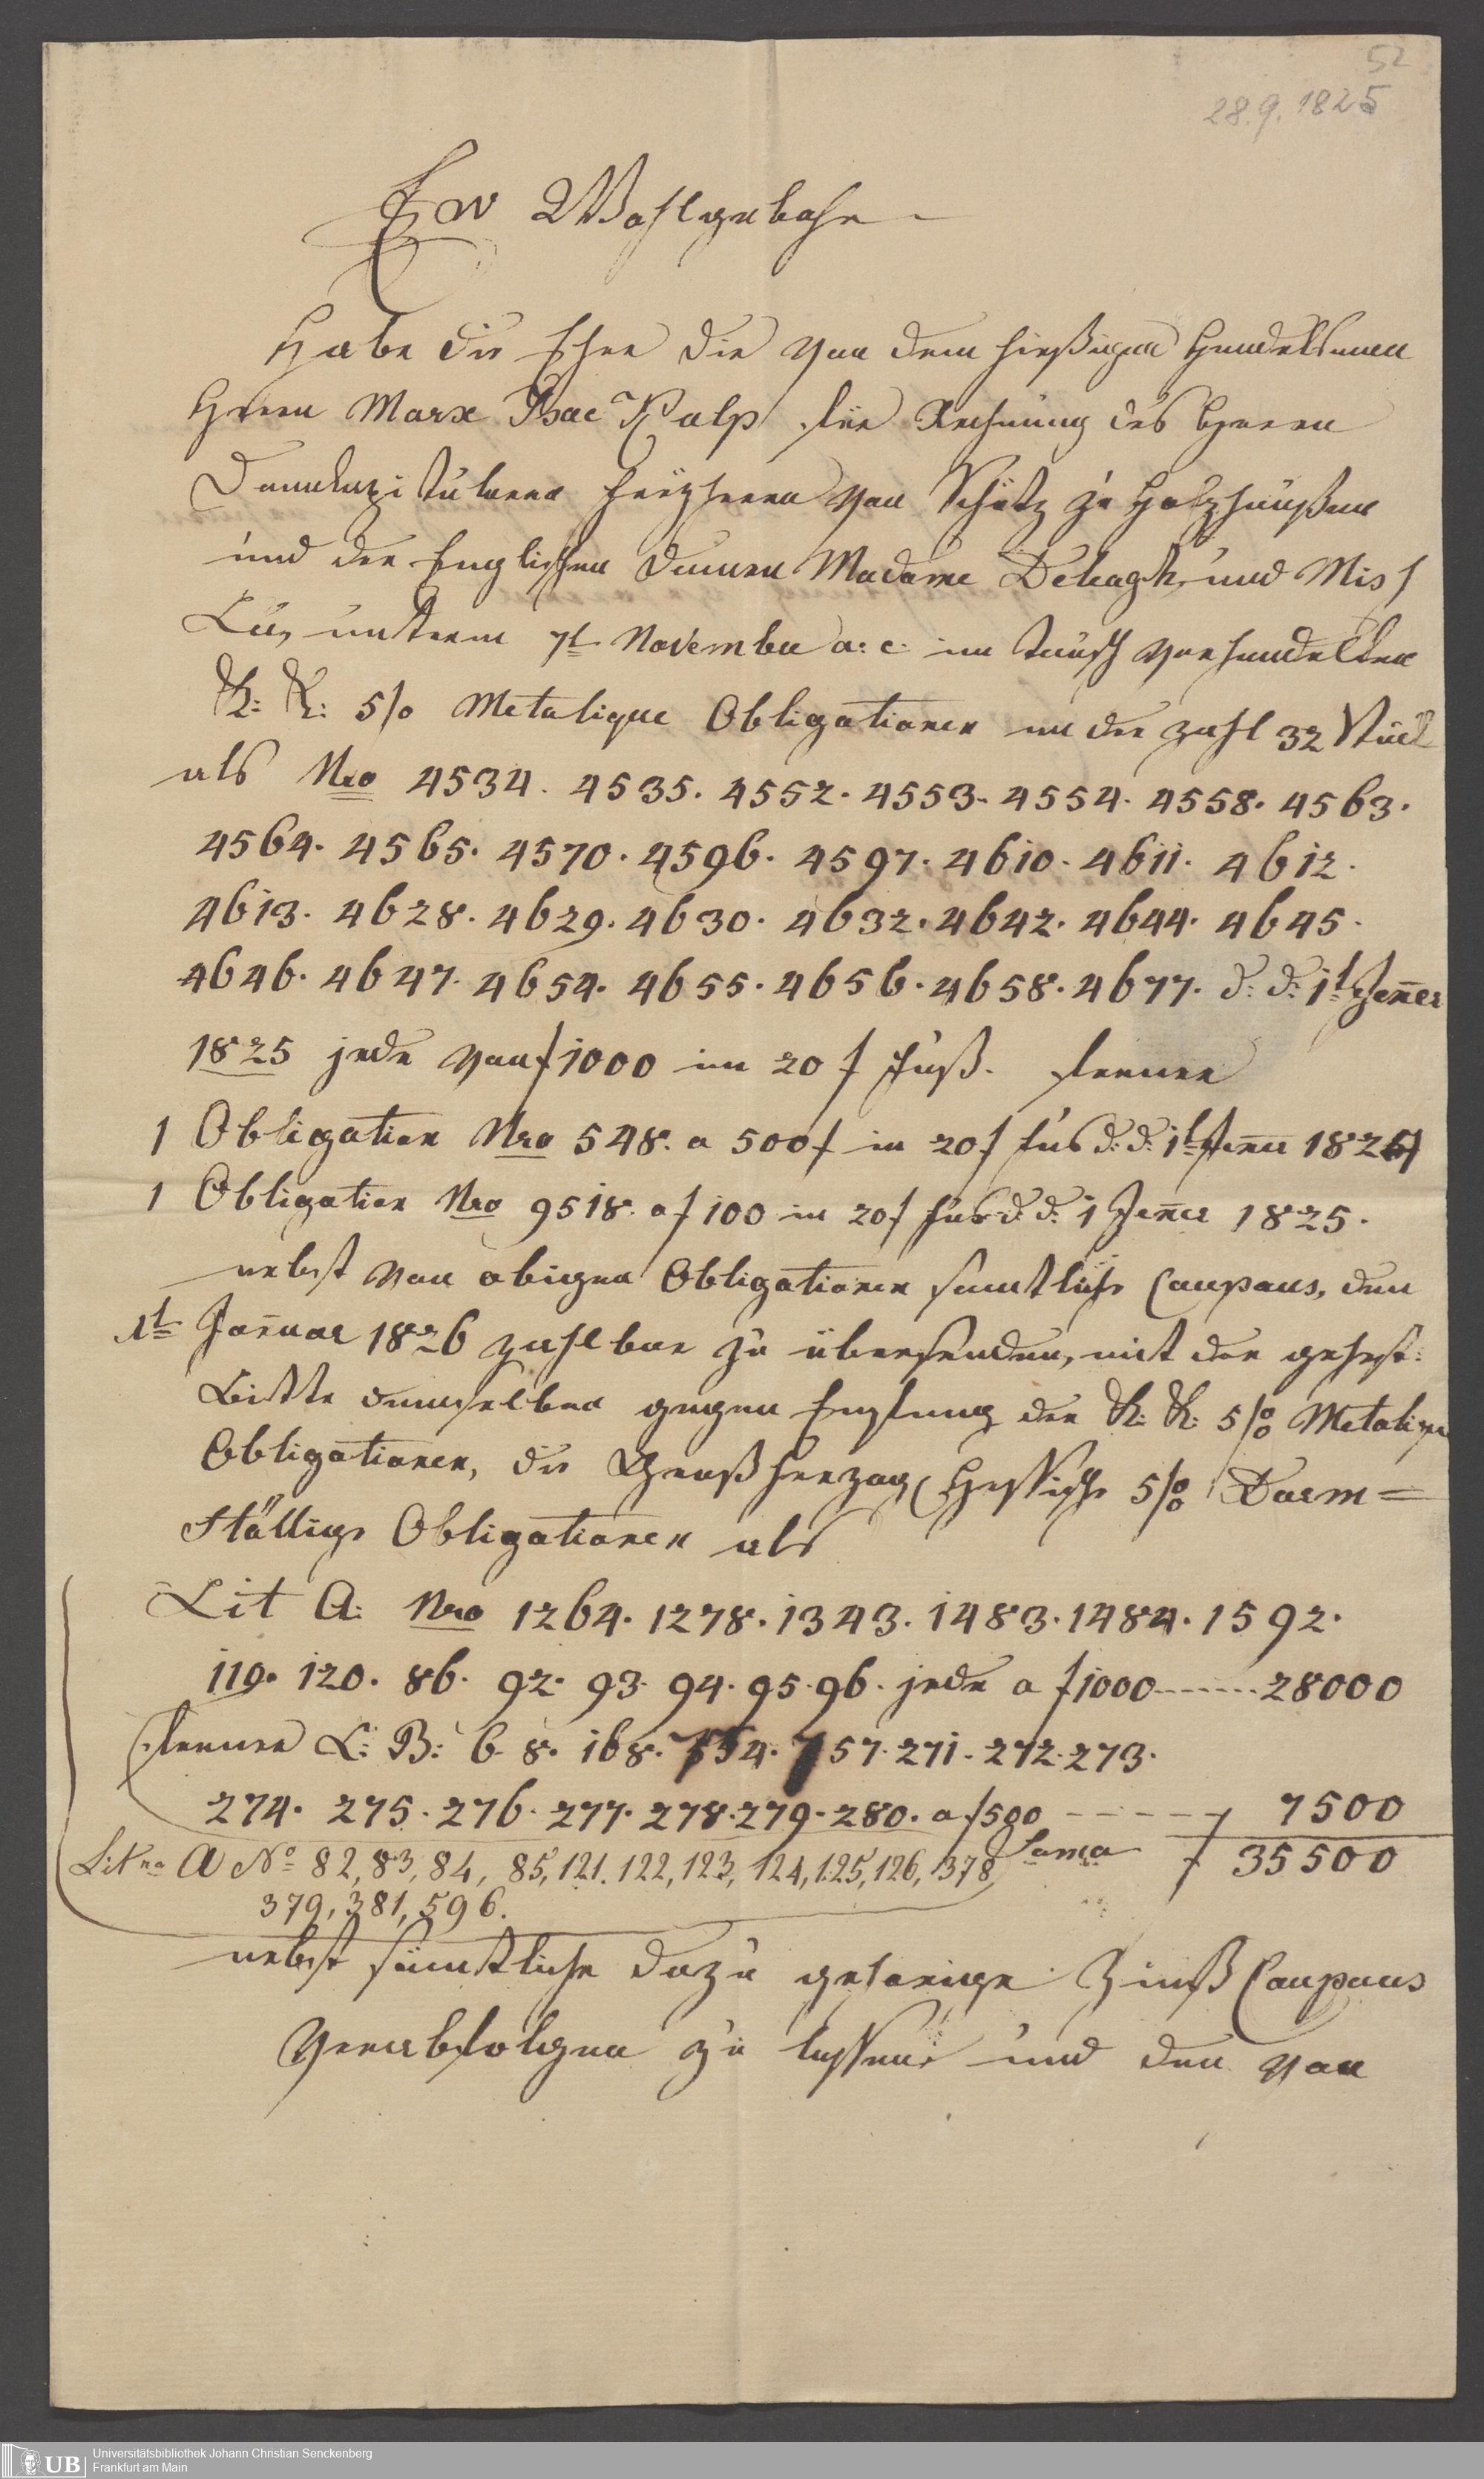 52
28.9.1825
Ew Wohlgebohr
Habe die Ehre die von dem hießigen Handelsmann
Herrn Marx Isac Kulp für Rechnung des Herrn
Domkapitularen Freyherrn von Schütz zu Holzhaußen
und der Englischen Damen Madame und Miss
unterm 7t November a: c: im tausch verhandelten
K: K: 5/0 Metalique Obligationen an der Zahl 32 Stück
als Nro 4534. 4535. 4552. 4553. 4554. 4558. 4563.
4564. 4565. 4570. 4596. 4597. 4610. 4611. 4612.
4613. 4628. 4629. 4630. 4632. 4642. 4644. 4645.
4646. 4647. 4654. 4655. 4656. 4658. 4677. d: d: 1t Jen̄er
1825 jede von f 1000 im 20 f Fuß. ferner
1 Obligation Nro 548. a 500 f in 20 f Fus d: d: 1t Jen̄er
1 Obligation Nro 9518. a f 100 in 20 f Fus d: d: 1 Jen̄er 1825.
nebst von obigen Obligationen samtliche Coupons, den
1t Jan̄uar 1826 zahlbar zu übersenden, mit der gehors:
Bitte demselben gegen Empfang der K: K: 5/0 Metalique
Obligationen, die Großherzog Hessische 5/0 Darm=
stättige Obligationen als
Lit A: Nro 1264. 1278. 1343. 1483. 1484. 1592.
119. 120. 86. 92. 93. 94. 95. 96. jede a f 1000 ------- 28000
ferner L: B: 6. 8. 168. 754. 757. 271. 272. 273.
274. 275. 276. 277. 278. 279. 280. a f 500 ----- 7500
Sama f 35500
Litra A No 82, 83, 84, 85, 121. 122, 123, 124, 125, 126, 1378,
379, 381, 596.
nebst sämtliche dazu gehörige Zinß Coupons
verabfolgen zu lassen und den von
UB Universitätsbibliothek Johann Christian Senckenberg
Frankfurt am Main